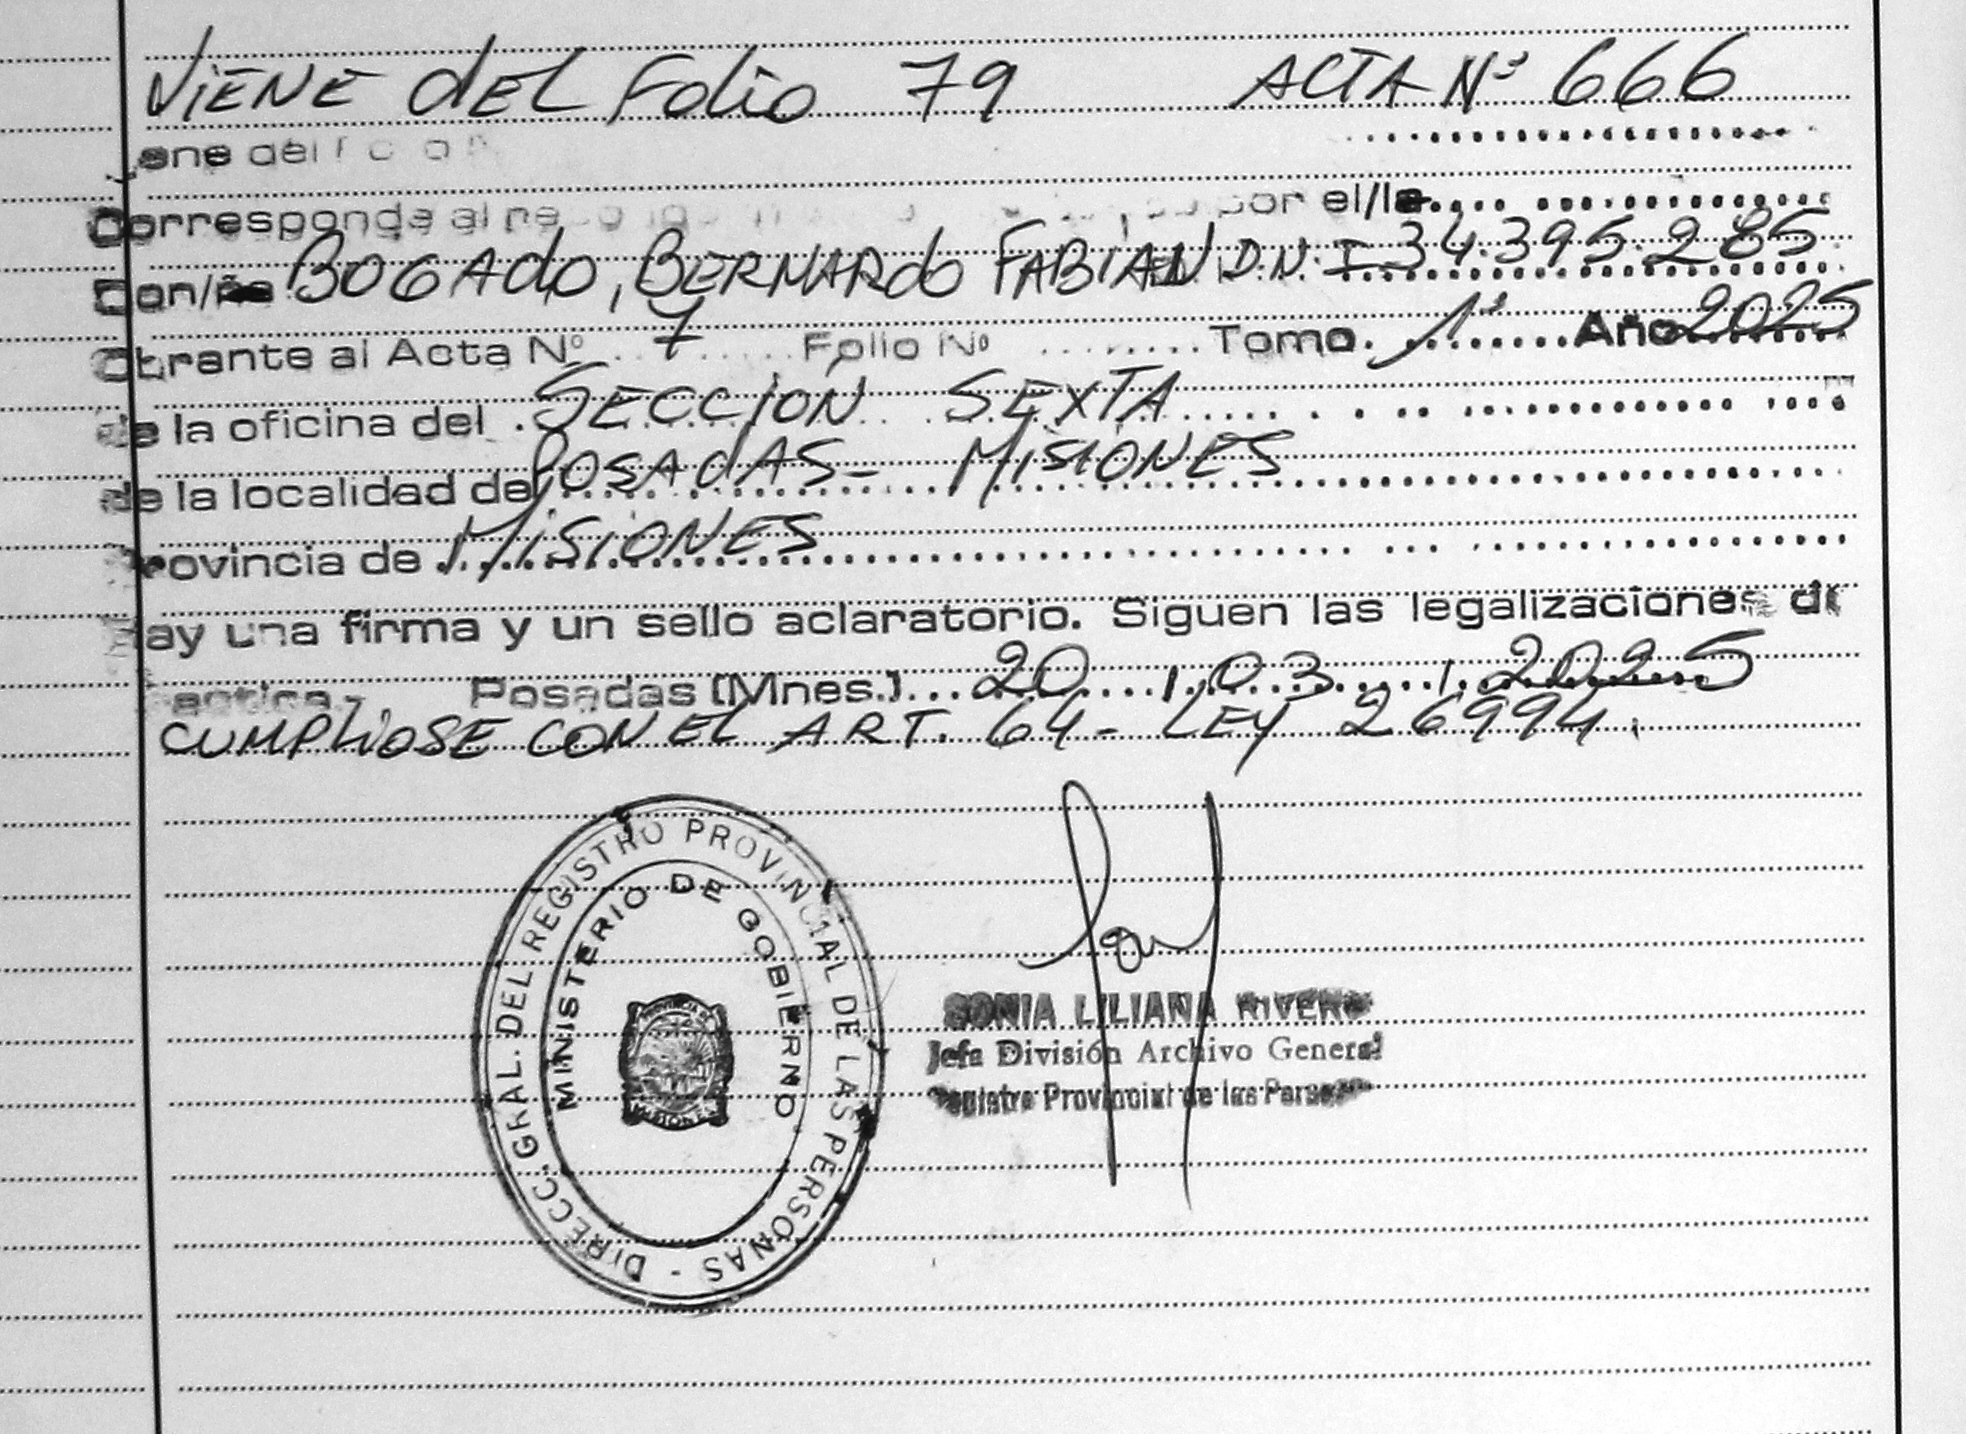 VIENE dEL Folio 79 ACTA Nº 666
ene del
Corresponde al por el/la
Don/ña BOGAdo, BERNARdo FABIAN D.N.I 34.395.285
Obrante al Acta Nº 7 Folio Nº Tomo 1º Año 2025
de la oficina del SECCION SEXTA
de la localidad de POSAdAS - MISIONES
Provincia de MISIONES
Hay una firma y un sello aclaratorio. Siguen las legalizaciones de
Posadas (Mnes.) 20 / 03 / 2025
CUMPLIOSE CON EL ART. 64 - LEY 26994.
DIRECC. GRAL. DEL REGISTRO PROVINCIAL DE LAS PERSONAS -
MINISTERIO DE GOBIERNO
PROVINCIA DE
MISIONES
SONIA LILIANA RIVERO
Jefa División Archivo General
Registro Provincial de las Personas